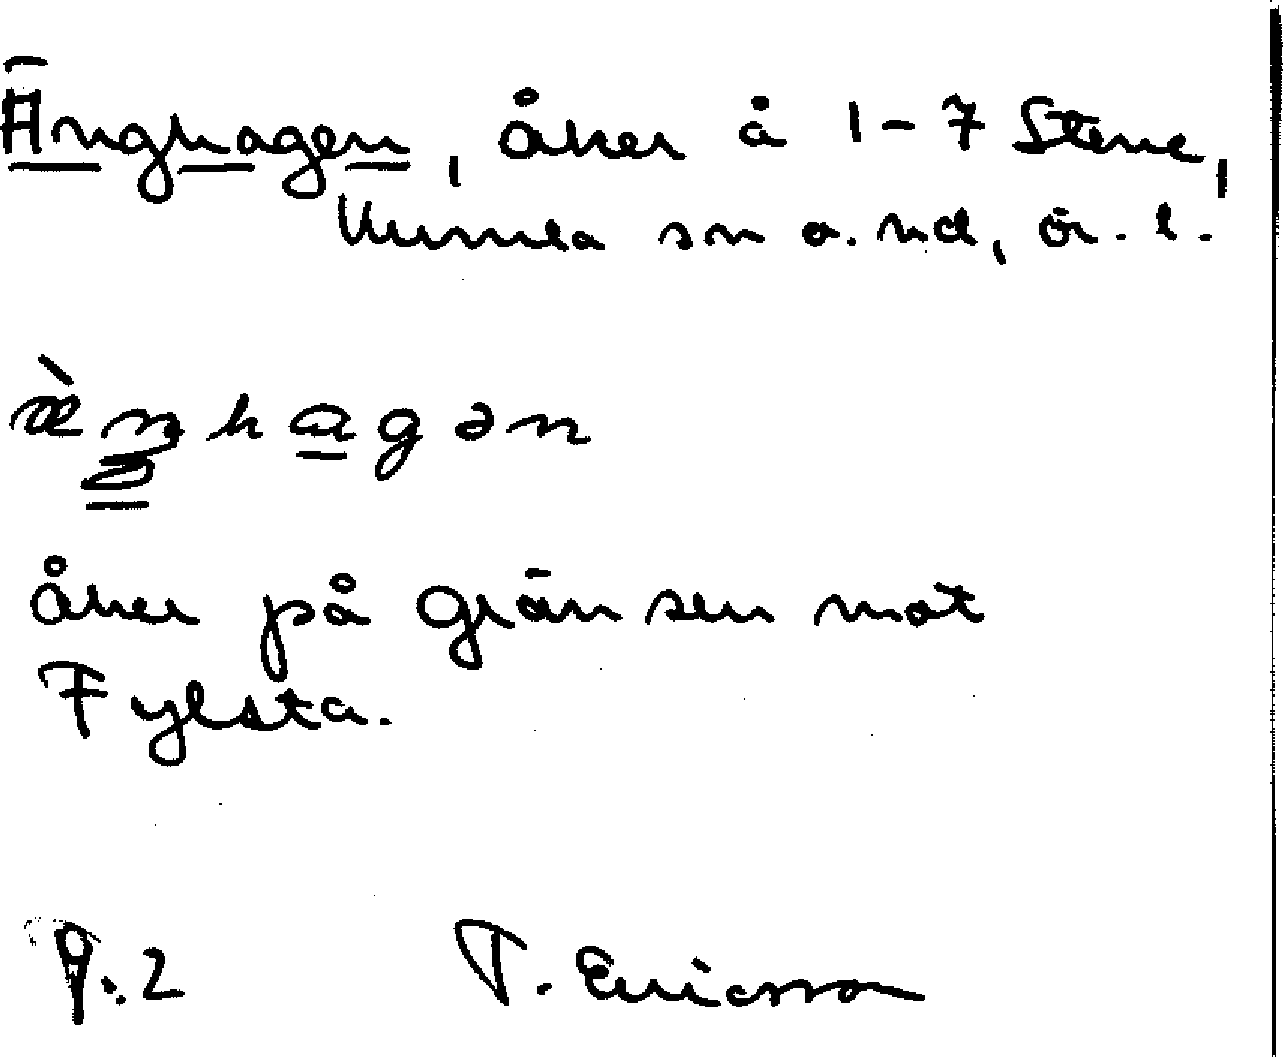 Änghagen, åker å 1-7 Stene,
Kumla sn o. hd, ör. l.
åker på gränsen mot
Fylsta.
P. 2 T. Ericsson